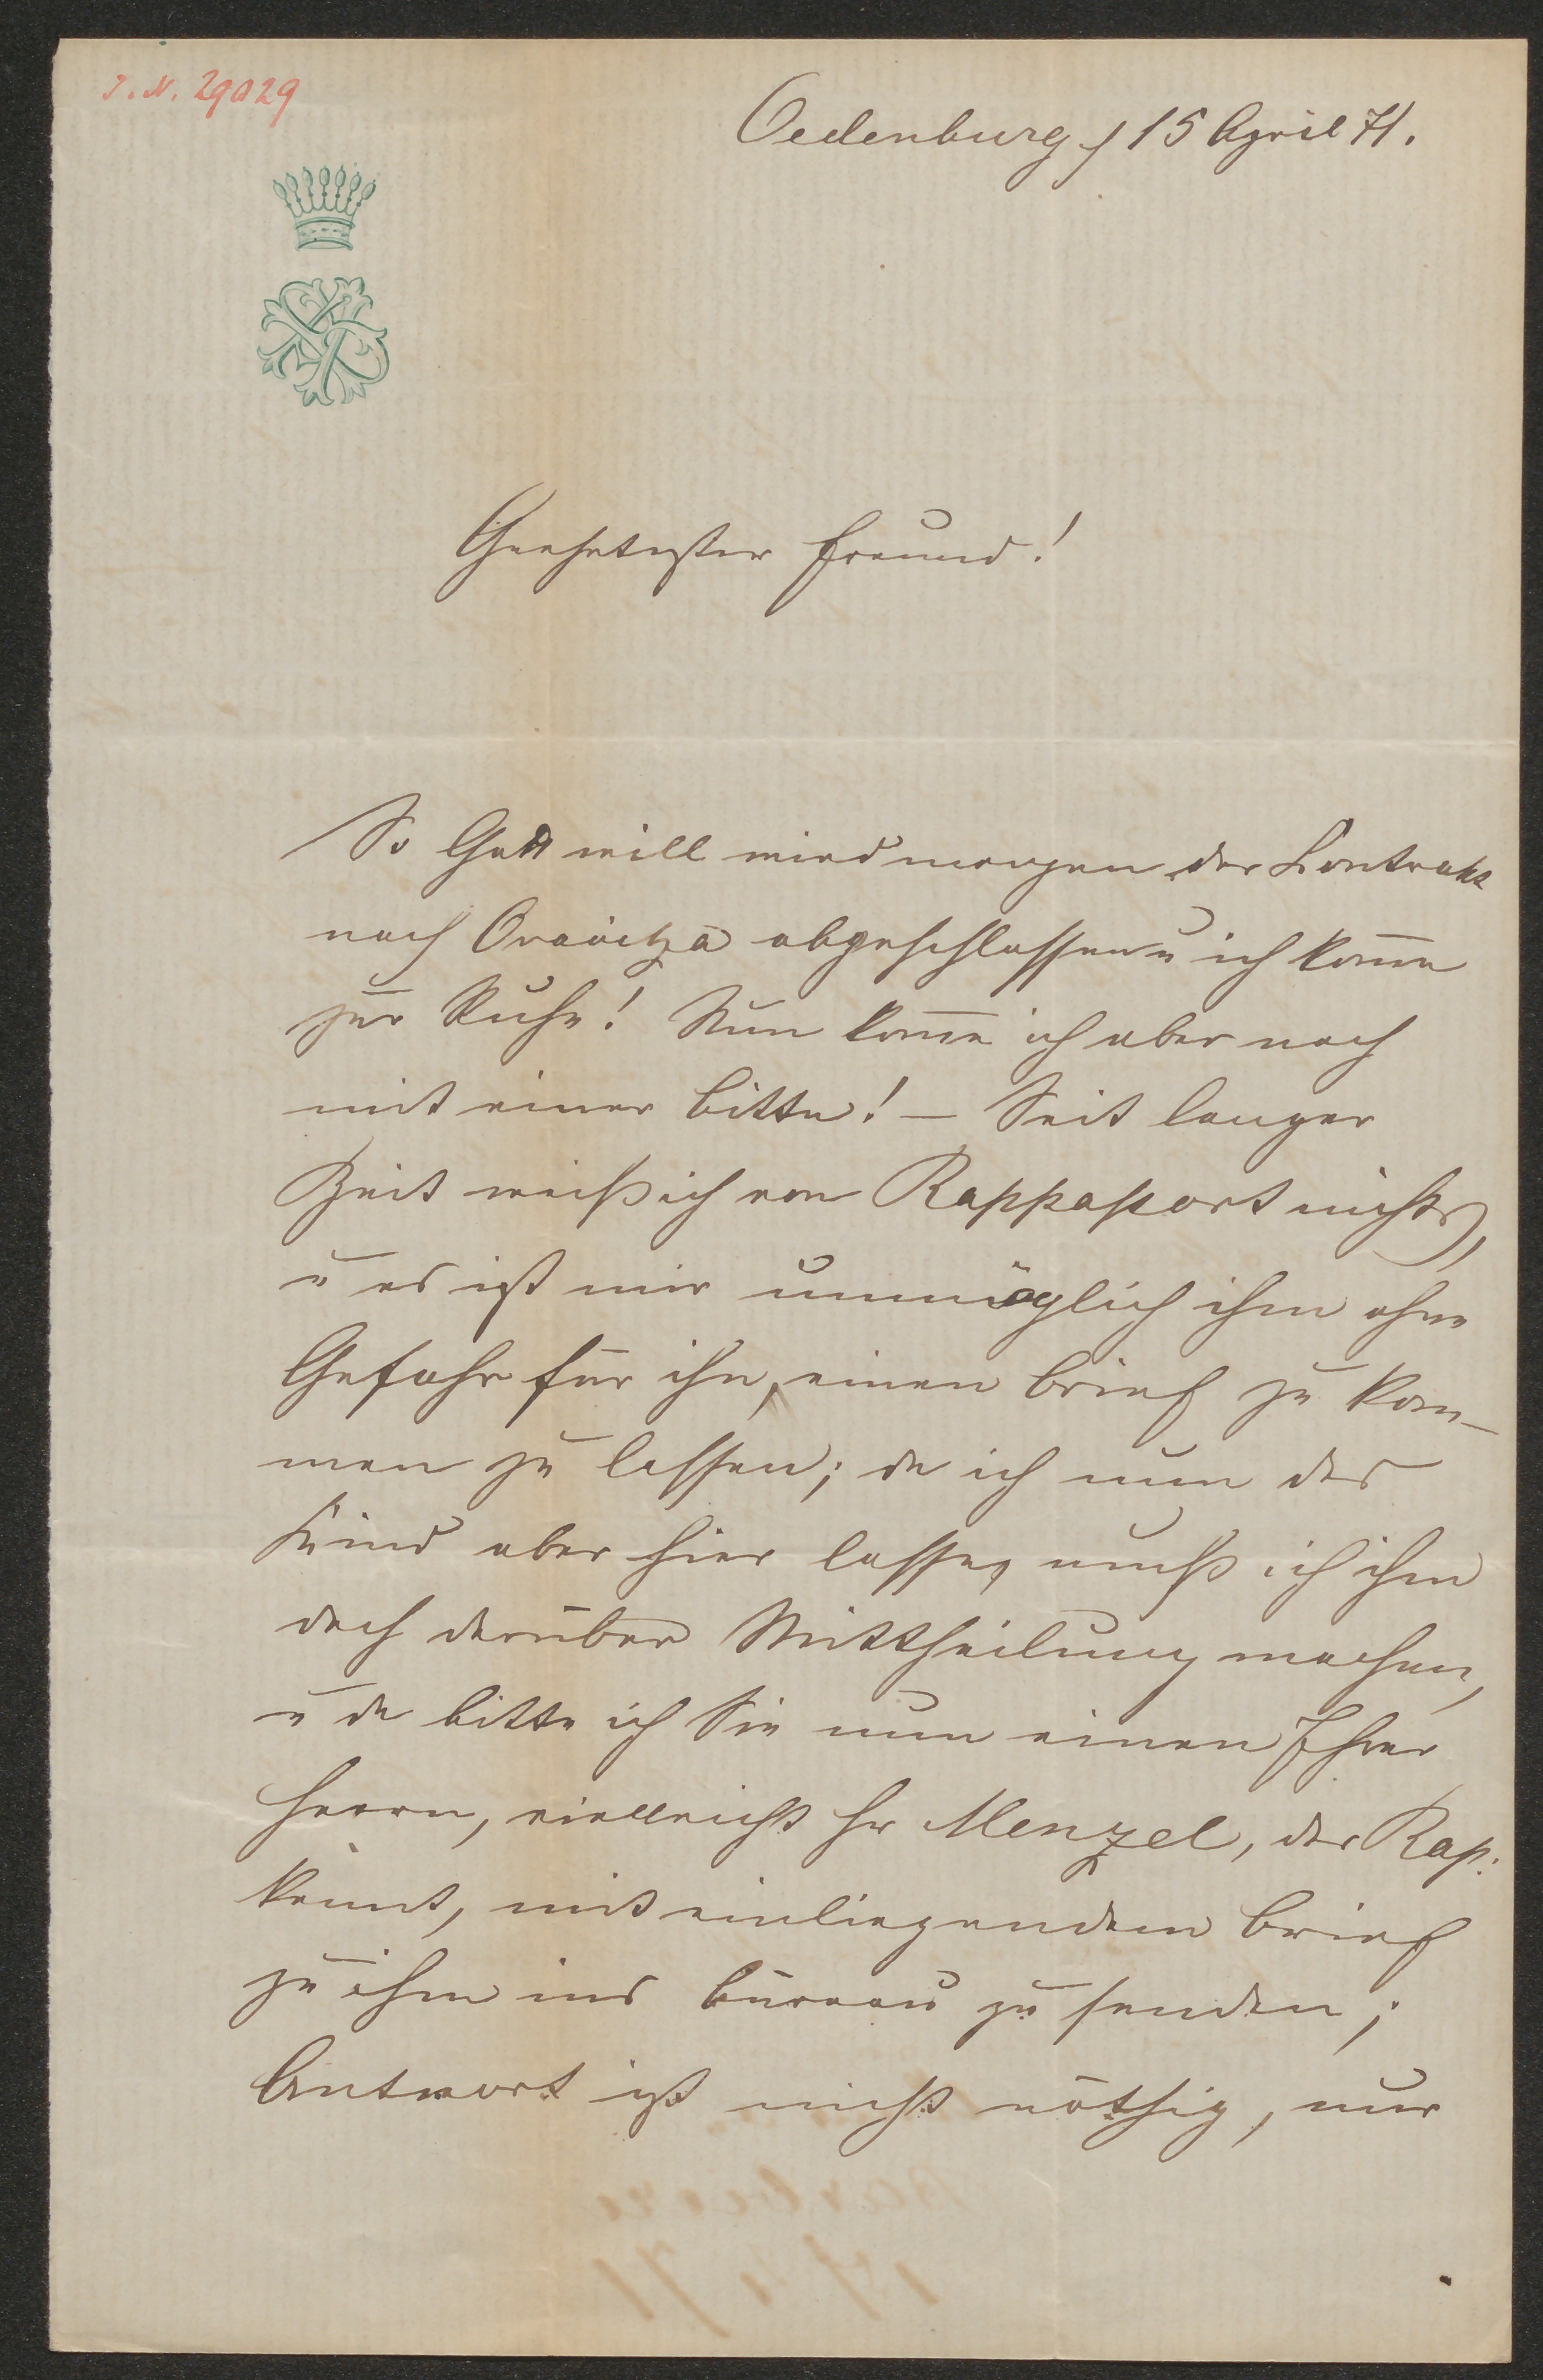 I. N. 29029
Oedenburg, 15 April 71.
Geehrtester Freund!
So Gott will wird morgen der Kontrakt
nach Oravitza abgeschlossen u ich kom̅e
zur Ruhe! Nun kom̅e ich aber noch
mit einer Bitte! — Seit langer
Zeit weiß ich von Rappaport nichts,
u es ist mir unmöglich ihm ohne
Gefahr für ihn, einen Brief zu kom-
men zu lassen; da ich nun das
Kind aber hier lasse, muß ich ihm
doch darüber Mittheilung machen,
u da bitte ich Sie nun einen Ihrer
Herrn, vielleicht Hr Menzel, der Rap.
kennt, mit einliegendem Brief
zu ihm ins Bureau zu senden;
Antwort ist nicht nöthig, nur